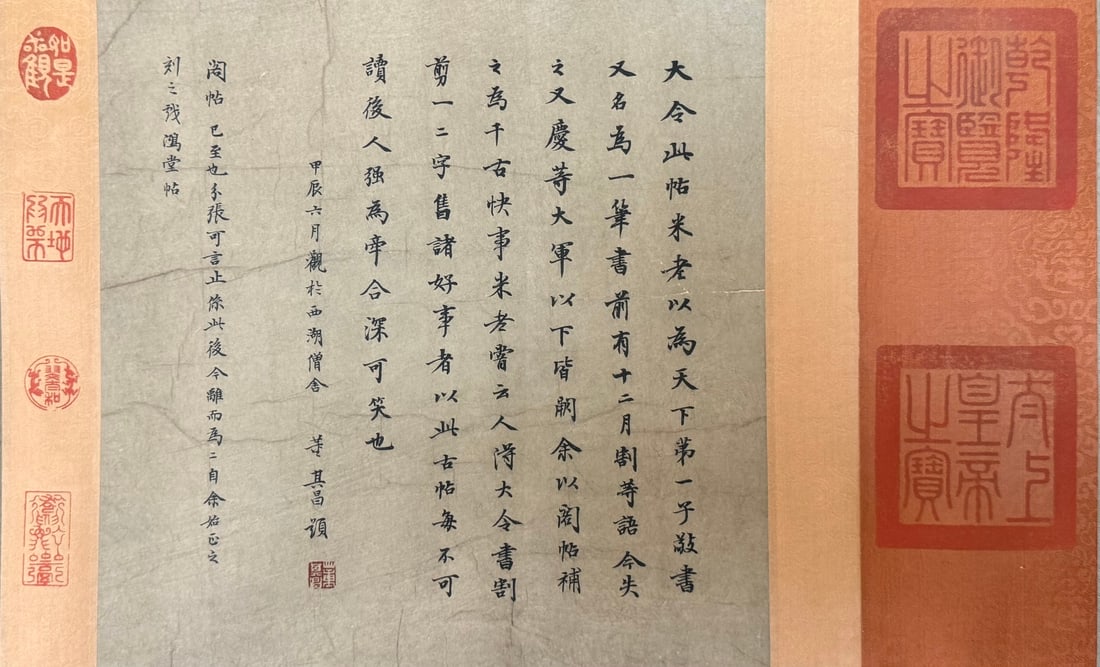 乾隆御覽之寶
太上皇帝之寶
大令此帖米老以為天下第一子敬書
又名為一筆書前有十二月割等語今失
之又慶等大軍以下皆闕余以閣帖補
之為千古快事米老嘗云人得大令書割
剪一二字售諸好事者以此古帖每不可
讀後人强為牽合深可笑也
甲辰六月觀於西湖僧舍 董其昌題
閣帖已至也分張可言止係此後今離而為二自余始正之
刻之戏鴻堂帖
如是我觀
雙龢